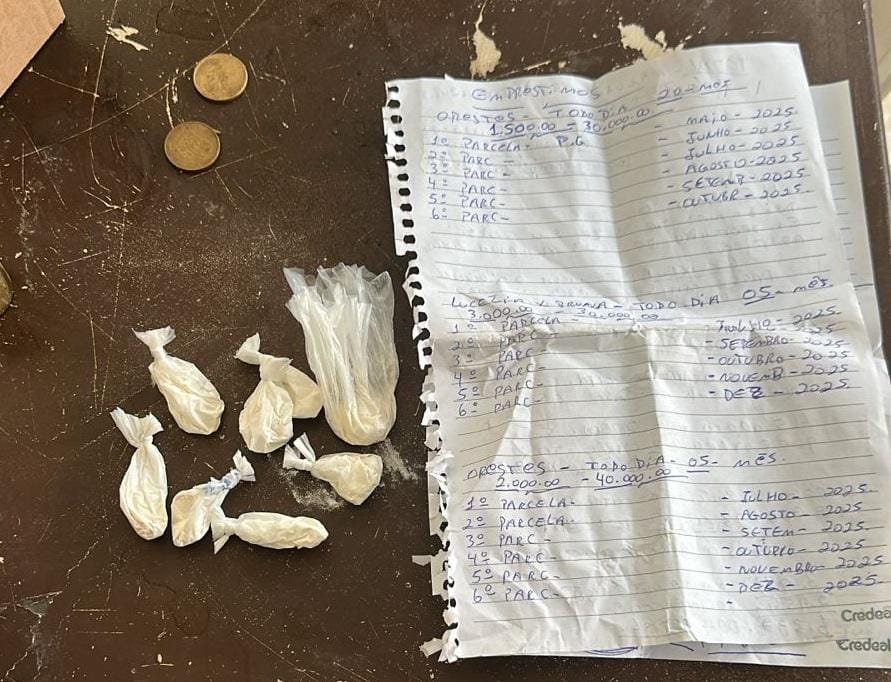 EMPRESTIMOS
ORESTES - TODO DIA 20 - MÊS
1.500,00 - 30.000.00
1º PARCELA - P.G - MAIO - 2025
2º PARC - JUNHO - 2025
3º PARC - - JULHO - 2025
4º PARC - - AGOSTO - 2025
5º PARC - - SETEMB - 2025
6º PARC - - OUTUBR - 2025
- TODO DIA 05 - MÊS
3.000.00 - 30.000.00
1º PARCELA - - JULHO - 2025
2º PARC - SETEMBRO - 2025
3º PARC - OUTUBRO - 2025
4º PARC - - NOVEMB - 2025
5º PARC - - DEZ - 2025
6º PARC -
ORESTES - TODO DIA - 05 - MÊS.
2.000.00 - 40.000.00
1º PARCELA - - JULHO - 2025
2º PARCELA - - AGOSTO - 2025
3º PARC - - SETEM - 2025
4º PARC - - OUTUBRO - 2025
5º PARC - - NOVEMBRO - 2025
6º PARC - - DEZ - 2025
Credeal
Credeal